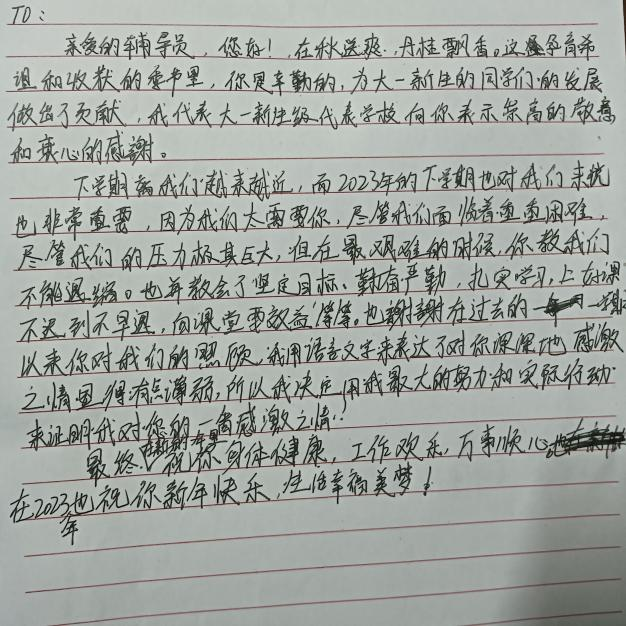 TO：
亲爱的辅导员，您好！在秋送爽，丹桂飘香。这孕育希
和收获的季节里，你是辛勤的，为大一新生的同学们的发展
做出了贡献，我代表大一新生级代表学校向你表示崇高的敬意
和衷心的感谢。
下学期离我们越来越近，而2023年的下学期也对我们来说
也非常重要，因为我们太需要你，尽管我们面临着重重困难，
尽管我们的压力极其巨大，但在最艰难的时候，你教我们
不能退缩。也并教会了坚定目标、勤奋严勤，扎实学习，上好课
不迟到不早退，向课堂要效益等等。也谢谢在过去的一
以来你对我们的照顾，我用语言文字来表达了对你深深地感激
之情显得有点薄弱，所以我决定用我最大的努力和实际行动
来证明我对您的一番感激之情！
最终祝你身体健康，工作欢乐，万事顺心
在2023年也祝你新年快乐，生活幸福美梦！